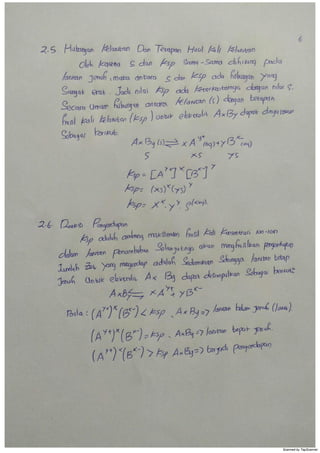 6
2.5 Hubungan Kelarutan Dan Tetapan Hasil Kali Kelarutan
Oleh karena S dan Ksp sama-sama dihitung pada
larutan jenuh, maka antara S dan Ksp ada hubungan yang
sangat erat. Jadi nilai Ksp ada keterkaitannya dengan nilai S.
Secara umum hubungan antara kelarutan (s) dengan tetapan
hasil kali kelarutan (Ksp) untuk elektrolit AxBy dapat dinyatakan
sebagai berikut:
AxBy (s) ⇌ x A^y+ (aq) + y B^x- (aq)
S xS yS
Ksp = [A^y+]^x [B^x-]^y
Ksp = (xs)^x (ys)^y
Ksp = x^x . y^y s^(x+y).
2.6 Reaksi Pengendapan
Ksp adalah ambang maksimum hasil kali konsentrasi ion-ion
dalam larutan penambahan selanjutnya akan menghasilkan pengendapan
Jumlah zat yang mengendap adalah sedemikian sehingga larutan tetap
jenuh. Untuk elektrolit Ax By dapat disimpulkan sebagai berikut:
AxBy ⇌ x A^y+ + yB^x-
Bila : (A^y+)^x (B^x-) < Ksp, AxBy => larutan belum jenuh (larut).
(A^y+)^x (B^x-) = Ksp, AxBy => larutan tepat jenuh.
(A^y+)^x (B^x-) > Ksp AxBy => terjadi pengendapan
Scanned by TapScanner